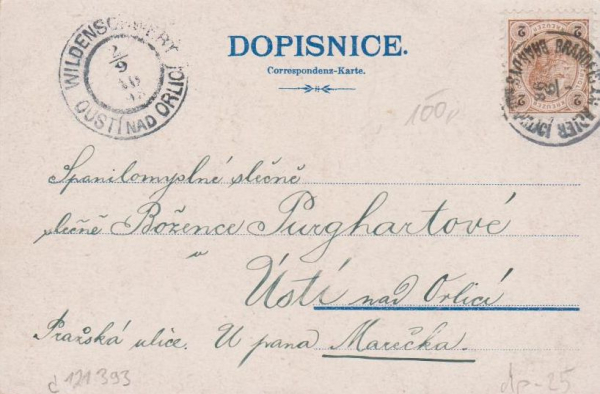 WILDENSCHWERT
2/9
98
OUSTÍ NAD ORLICÍ
DOPISNICE.
Correspondenz-Karte.
2 KREUZER 2
BRANDEIS
ADLER
100,-
Spanilomyslné slečně
slečně Božence Purghartové
v
Ústí nad Orlicí
Pražská ulice. U pana Marečka.
č 121393
dp-25